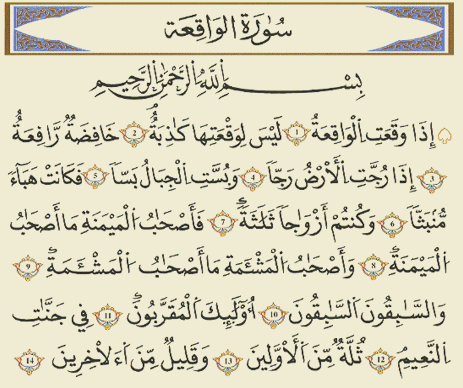 سُورَةُ الوَاقِعَة
بِسْمِ اللَّهِ الرَّحْمَٰنِ الرَّحِيمِ
إِذَا وَقَعَتِ اِلْوَاقِعَةُ 1 لَيْسَ لِوَقْعَتِهَا كَاذِبَةٌ 2 خَافِضَةٌ رَّافِعَةٌ
3 إِذَا رُجَّتِ اِلْأَرْضُ رَجّاً 4 وَبُسَّتِ اِلْجِبَالُ بَسّاً 5 فَكَانَتْ هَبَآءً
مُّنۢبَثّاً 6 وَكُنتُمْ أَزْوَٰجاً ثَلَٰثَةً 7 فَأَصْحَٰبُ اُلْمَيْمَنَةِ مَا أَصْحَٰبُ
اُلْمَيْمَنَةِ 8 وَأَصْحَٰبُ اُلْمَشْـَٔمَةِ مَا أَصْحَٰبُ اُلْمَشْـَٔمَةِ 9
وَالسَّٰبِقُونَ اَلسَّٰبِقُونَ 10 أُوْلَٰٓئِكَ اَلْمُقَرَّبُونَ 11 فِي جَنَّٰتِ
اِلنَّعِيمِ 12 ثُلَّةٌ مِّنَ اَلْأَوَّلِينَ 13 وَقَلِيلٌ مِّنَ اَلْءَاخِرِينَ 14